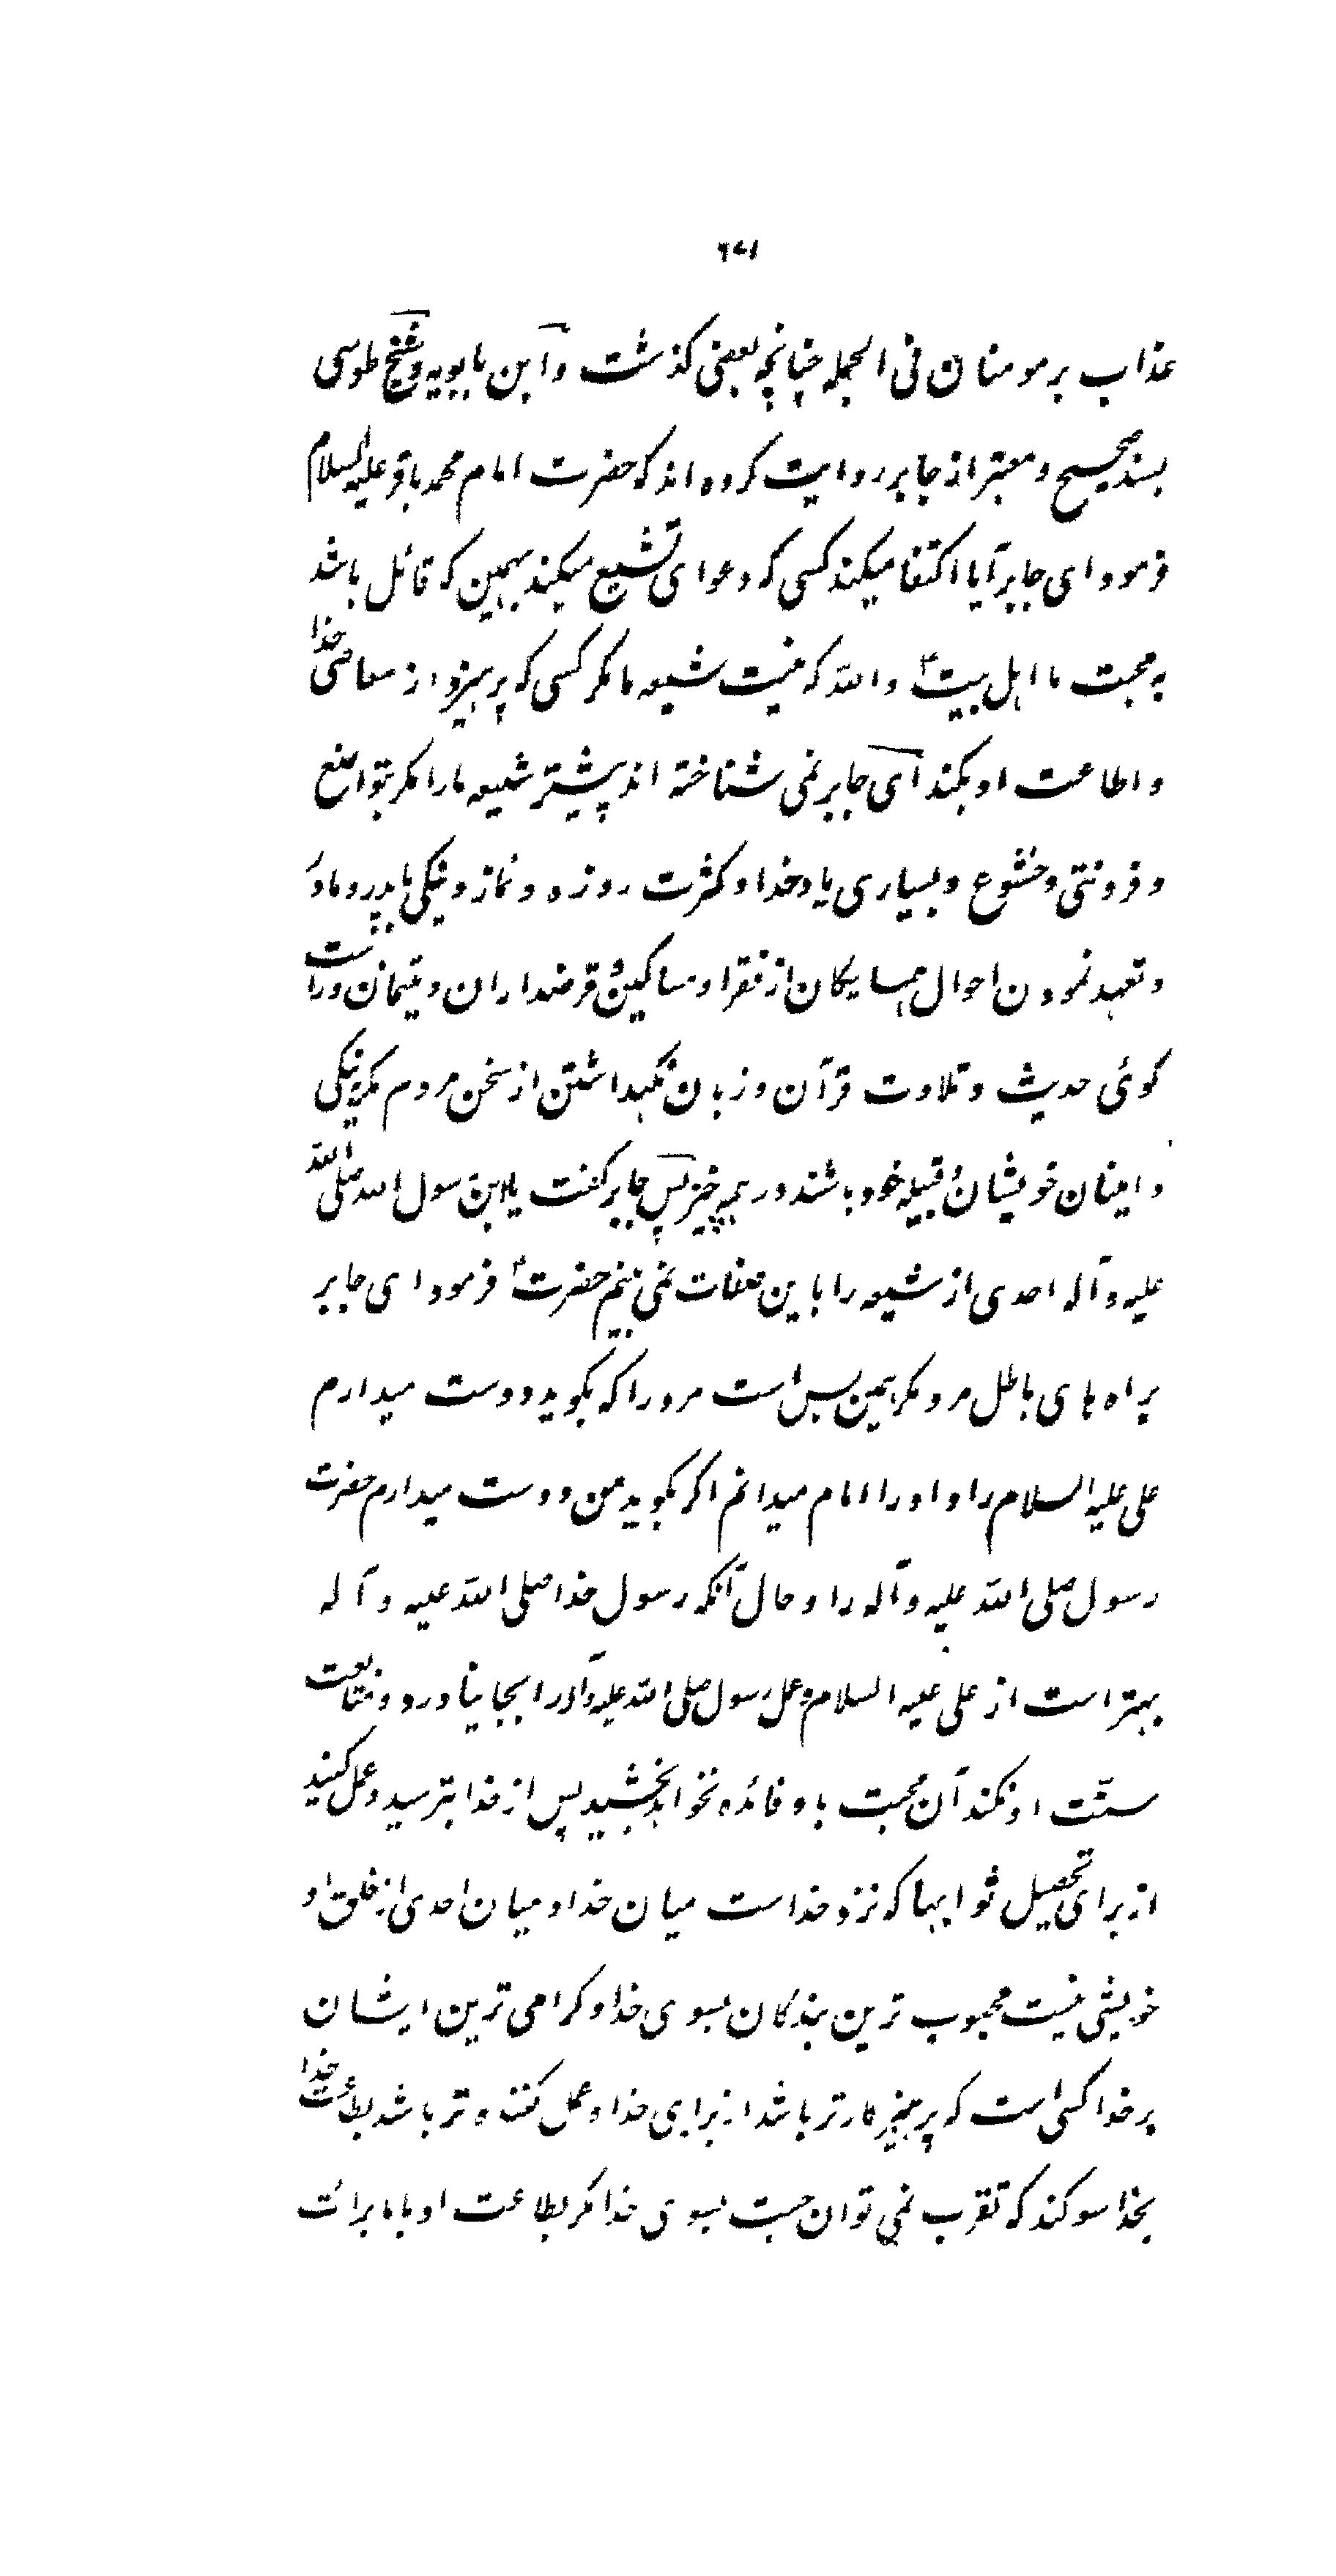 ۶۷۱
عذاب بر مومنان فی الجمله چنانچه بعضی کذشت و ابن بابویه و شیخ طوسی
بسند صحیح و معتبر از جابر روایت کرده اند که حضرت امام محمد باقر علیه السلام
فرمود ای جابر آیا اکتفا میکند کسی که دعوای تشیع میکند بهمین که قائل باشد
به محبت ما اهل بیت ع والله که نیست شیعه ما مکر کسی که پرهیزد از معاصی خدا
و اطاعت او بکند ای جابر نمی شناخته اند پیشتر شیعه ما را مکر بتواضع
و فروتنی و خشوع و بسیاری یاد خدا و کثرت روزه و نماز و نیکی با پدر و مادر
و تعهد نمودن احوال همسایکان از فقرا و مساکین و قرضداران و یتیمان و راست
کوئی حدیث و تلاوت قرآن و زبان نکهداشتن از سخن مردم مکر بنیکی
و امینان خویشان و قبیله خود باشند در همه چیز پس جابر کفت یا ابن رسول الله صلی الله
علیه و آله احدی از شیعه را باین صفات نمی بینم حضرت ع فرمود ای جابر
براه های باطل مرو مکر همین بس است مرد را که بکوید دوست میدارم
علی علیه السلام را و او را امام میدانم اکر بکوید من دوست میدارم حضرت
رسول صلی الله علیه و آله را و حال آنکه رسول خدا صلی الله علیه و آله
بهتر است از علی علیه السلام و عمل رسول صلی الله علیه و آله را بجا نیاورد و متابعت
سنّت او نکند آن محبت باو فائده نخواهد بخشید پس از خدا بترسید و عمل کنید
از برای تحصیل ثوابها که نزد خداست میان خدا و میان احدی از خلق او
خویشی نیست محبوب ترین بندکان بسوی خدا و کرامی ترین ایشان
بر خدا کسی است که پرهیزکارتر باشد از برای خدا و عمل کننده تر باشد بطاعت خدا
بخدا سوکند که تقرب نمی توان جست بسوی خدا مکر بطاعت او با ما برائت